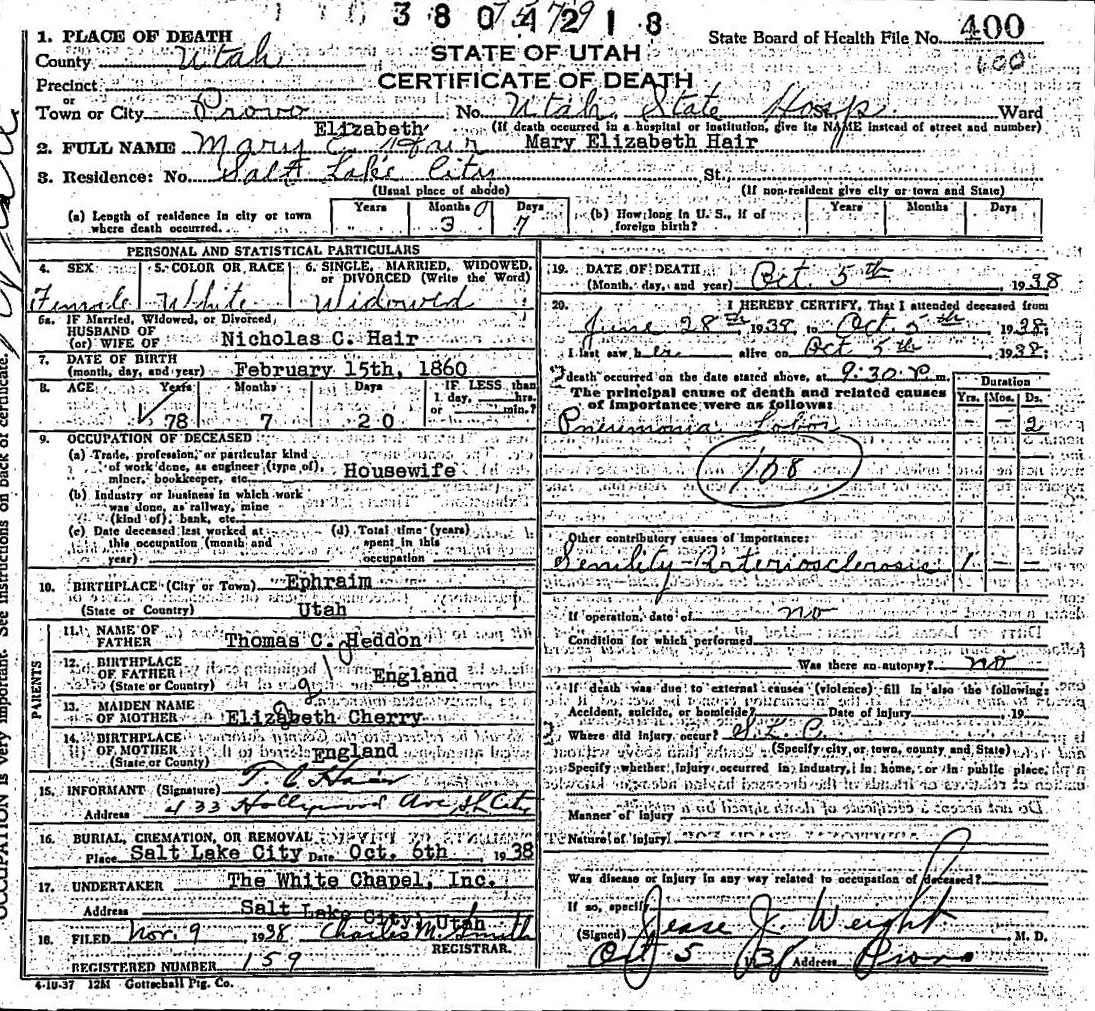 3 8 0 4 2 1 8
7579
1. PLACE OF DEATH
County Utah
State Board of Health File No. 400
100
STATE OF UTAH
CERTIFICATE OF DEATH
Precinct
or
Town or City Provo No. Utah State Hosp. St. Ward
(If death occurred in a hospital or institution, give its NAME instead of street and number)
Elizabeth
2. FULL NAME Mary E. Hair Mary Elizabeth Hair
3. Residence: No. Salt Lake City St.
(Usual place of abode) (If non-resident give city or town and State)
(a) Length of residence in city or town where death occurred. Years Months 3 Days 7
(b) How long in U. S., if of foreign birth? Years Months Days
PERSONAL AND STATISTICAL PARTICULARS
4. SEX Female
5. COLOR OR RACE White
6. SINGLE, MARRIED, WIDOWED, or DIVORCED (Write the Word) Widowed
6a. IF Married, Widowed, or Divorced,
HUSBAND OF
(or) WIFE OF Nicholas C. Hair
7. DATE OF BIRTH
(month, day, and year) February 15th, 1860
8. AGE Years 78 Months 7 Days 20
IF LESS than 1 day, hrs. or min.?
9. OCCUPATION OF DECEASED
(a) Trade, profession, or particular kind of work done, as engineer (type of), miner, bookkeeper, etc. Housewife
(b) Industry or business in which work was done, as railway, mine (kind of), bank, etc.
(c) Date deceased last worked at this occupation (month and year)
(d) Total time (years) spent in this occupation
10. BIRTHPLACE (City or Town) Ephraim
(State or Country) Utah
PARENTS
11. NAME OF FATHER Thomas C. Heddon
12. BIRTHPLACE OF FATHER (State or Country) England
13. MAIDEN NAME OF MOTHER Elizabeth Cherry
14. BIRTHPLACE OF MOTHER (State or Country) England
15. INFORMANT (Signature) T. C. Hair
Address 433 Hollywood Ave S.L. City
16. BURIAL, CREMATION, OR REMOVAL
Place Salt Lake City Date Oct. 6th, 1938
17. UNDERTAKER The White Chapel, Inc.
Address Salt Lake City, Utah
18. FILED Nov. 9 1938 Charles M. Smith
REGISTRAR.
REGISTERED NUMBER 159
4-10-37 12M Gottschall Ptg. Co.
19. DATE OF DEATH
(Month, day, and year) Oct. 5th, 1938
20. I HEREBY CERTIFY, That I attended deceased from
June 28th, 1938, to Oct. 5th, 1938;
I last saw her alive on Oct 5th, 1938;
death occurred on the date stated above, at 9:30 P. m.
The principal cause of death and related causes of importance were as follows:
Duration
Yrs. Mos. Ds.
Pneumonia Lobar - - 2
108
Other contributory causes of importance:
Senility-Arteriosclerosis 1 - -
If operation, date of no
Condition for which performed
Was there an autopsy? no
If death was due to external causes (violence) fill in also the following:
Accident, suicide, or homicide? Date of injury , 19
Where did injury occur? S.L.C.
(Specify city or town, county and State)
Specify whether injury occurred in industry, in home, or in public place.
Manner of injury
Nature of injury
Was disease or injury in any way related to occupation of deceased?
If so, specify
(Signed) Jesse J. Weight M. D.
Oct 5 1938 Address Provo
OCCUPATION is very important. See instructions on back of certificate.